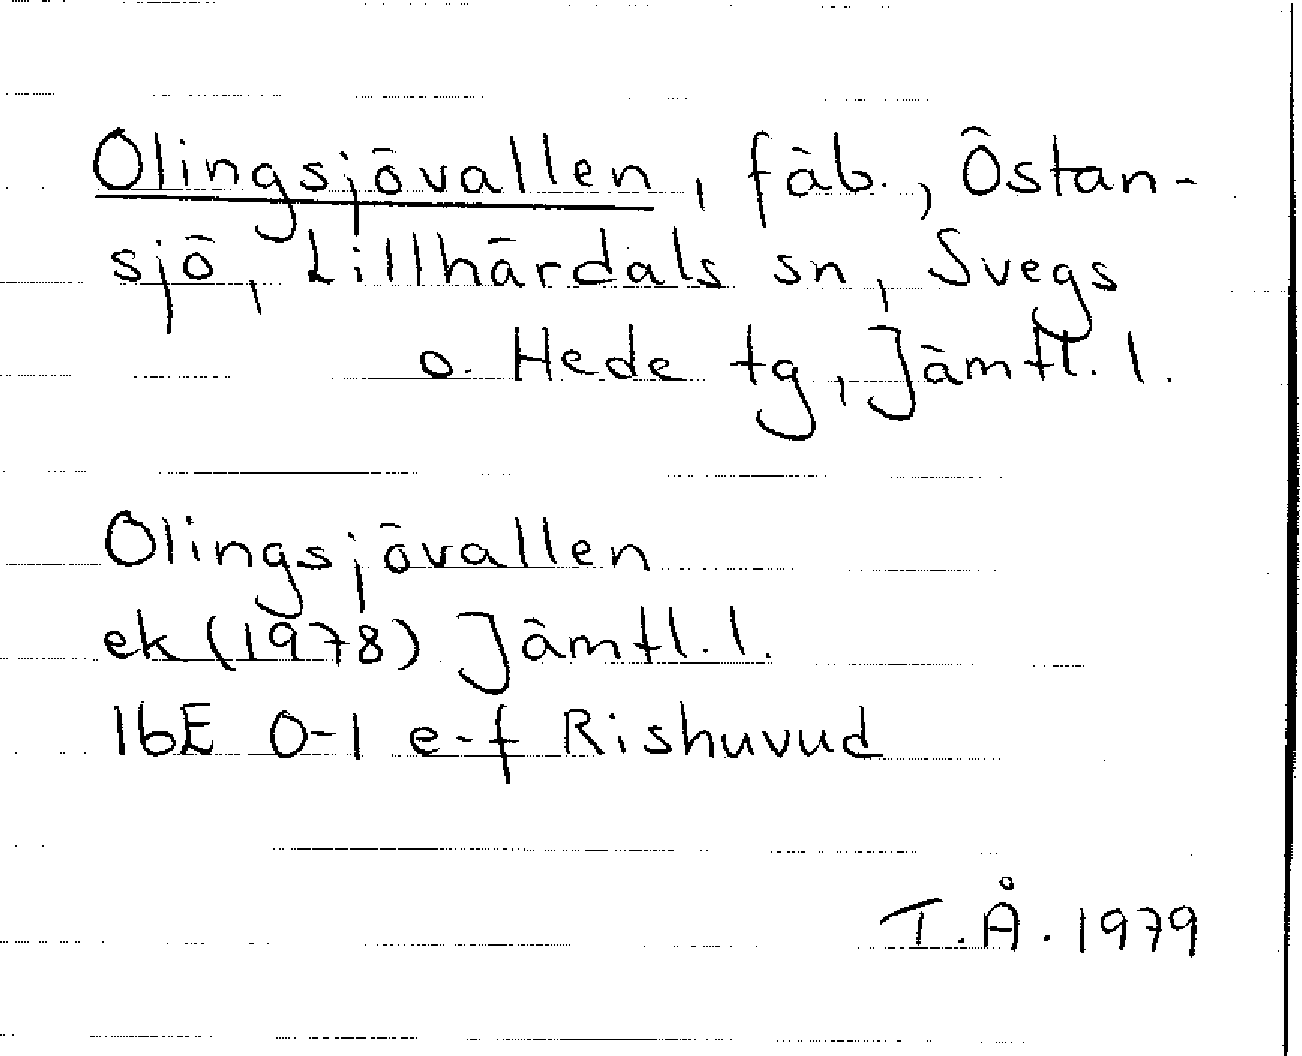 Olingsjövallen, fäb., Östan-
sjö, Lillhärdals sn, Svegs
o. Hede tg, Jämtl. l.
Olingsjövallen
ek (1978) Jämtl. l.
16E 0-1 e-f Rishuvud
T.Å. 1979